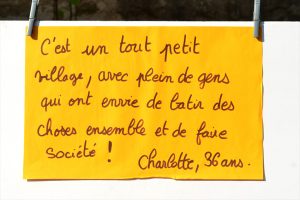 C'est un tout petit
village, avec plein de gens
qui ont envie de batir des
choses ensemble et de faire
société !
Charlotte, 36 ans.